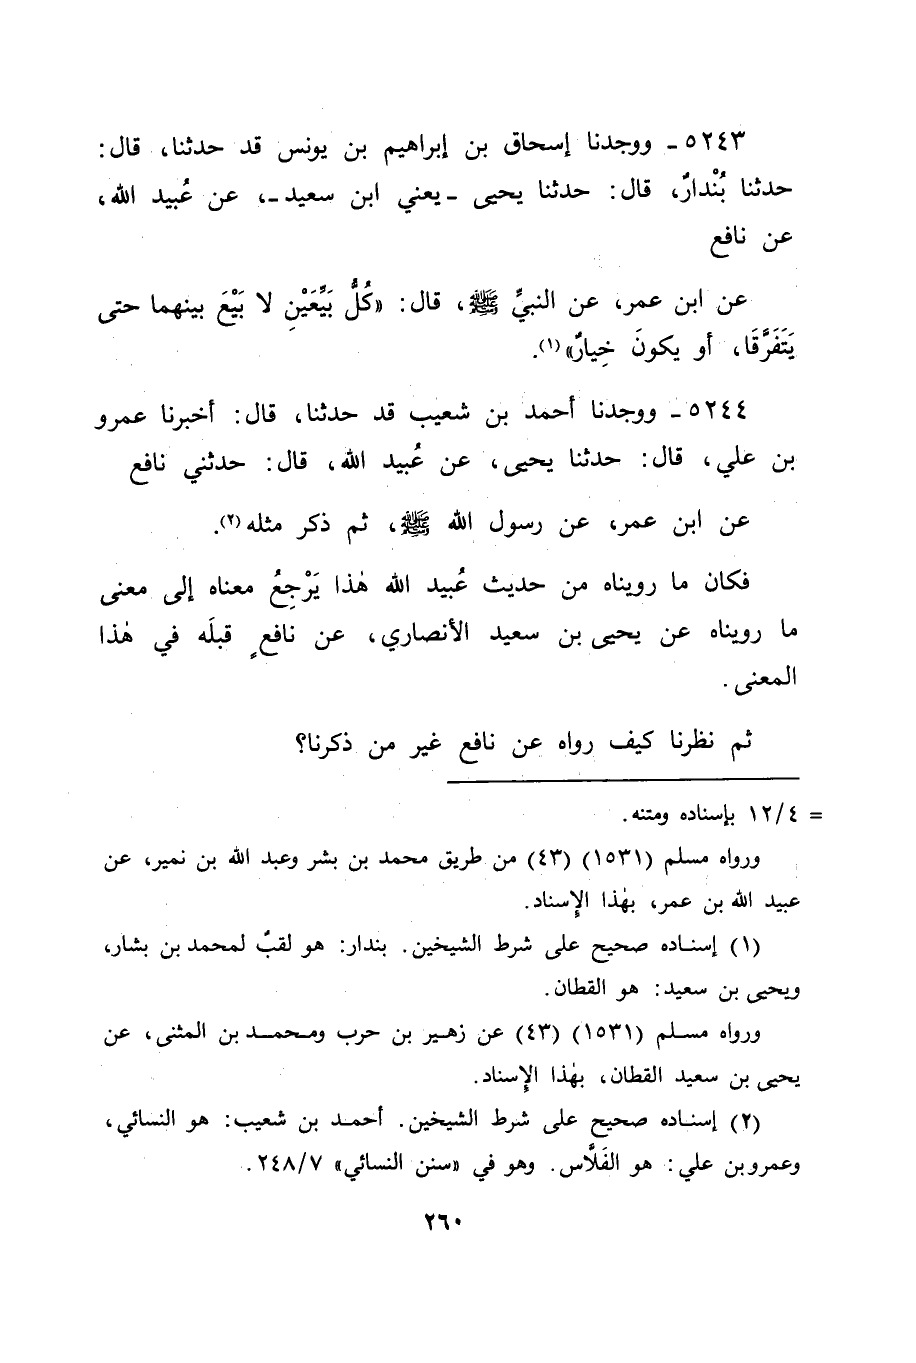 ٥٢٤٣ـ ووجدنا إسحاق بن إبراهيم بن يونس قد حدثنا، قال:
حدثنا بُنْدارٌ، قال: حدثنا يحيى ـ يعني ابن سعيد ـ، عن عُبيد الله،
عن نافع
عن ابن عمر، عن النبيِّ ﷺ، قال: «كُلُّ بَيِّعَيْنِ لا بَيْعَ بينهما حتى
يَتَفَرَّقَا، أو يكونَ خِيارٌ»(١).
٥٢٤٤ـ ووجدنا أحمد بن شعيب قد حدثنا، قال: أخبرنا عمرو
بن علي، قال: حدثنا يحيى، عن عُبيد الله، قال: حدثني نافع
عن ابن عمر، عن رسول الله ﷺ، ثم ذكر مثله(٢).
فكان ما رويناه من حديث عُبيد الله هٰذا يَرْجِعُ معناه إلى معنى
ما رويناه عن يحيى بن سعيد الأنصاري، عن نافعٍ قبلَه في هٰذا
المعنى.
ثم نظرنا كيف رواه عن نافع غير من ذكرنا؟
= ١٢/٤ بإسناده ومتنه.
ورواه مسلم (١٥٣١) (٤٣) من طريق محمد بن بشر وعبد الله بن نمير، عن
عبيد الله بن عمر، بهٰذا الإسناد.
(١) إسناده صحيح على شرط الشيخين. بندار: هو لقبٌ لمحمد بن بشار،
ويحيى بن سعيد: هو القطان.
ورواه مسلم (١٥٣١) (٤٣) عن زهير بن حرب ومحمد بن المثنى، عن
يحيى بن سعيد القطان، بهٰذا الإسناد.
(٢) إسناده صحيح على شرط الشيخين. أحمد بن شعيب: هو النسائي،
وعمرو بن علي: هو الفَلَّاس. وهو في «سنن النسائي» ٢٤٨/٧.
٢٦٠